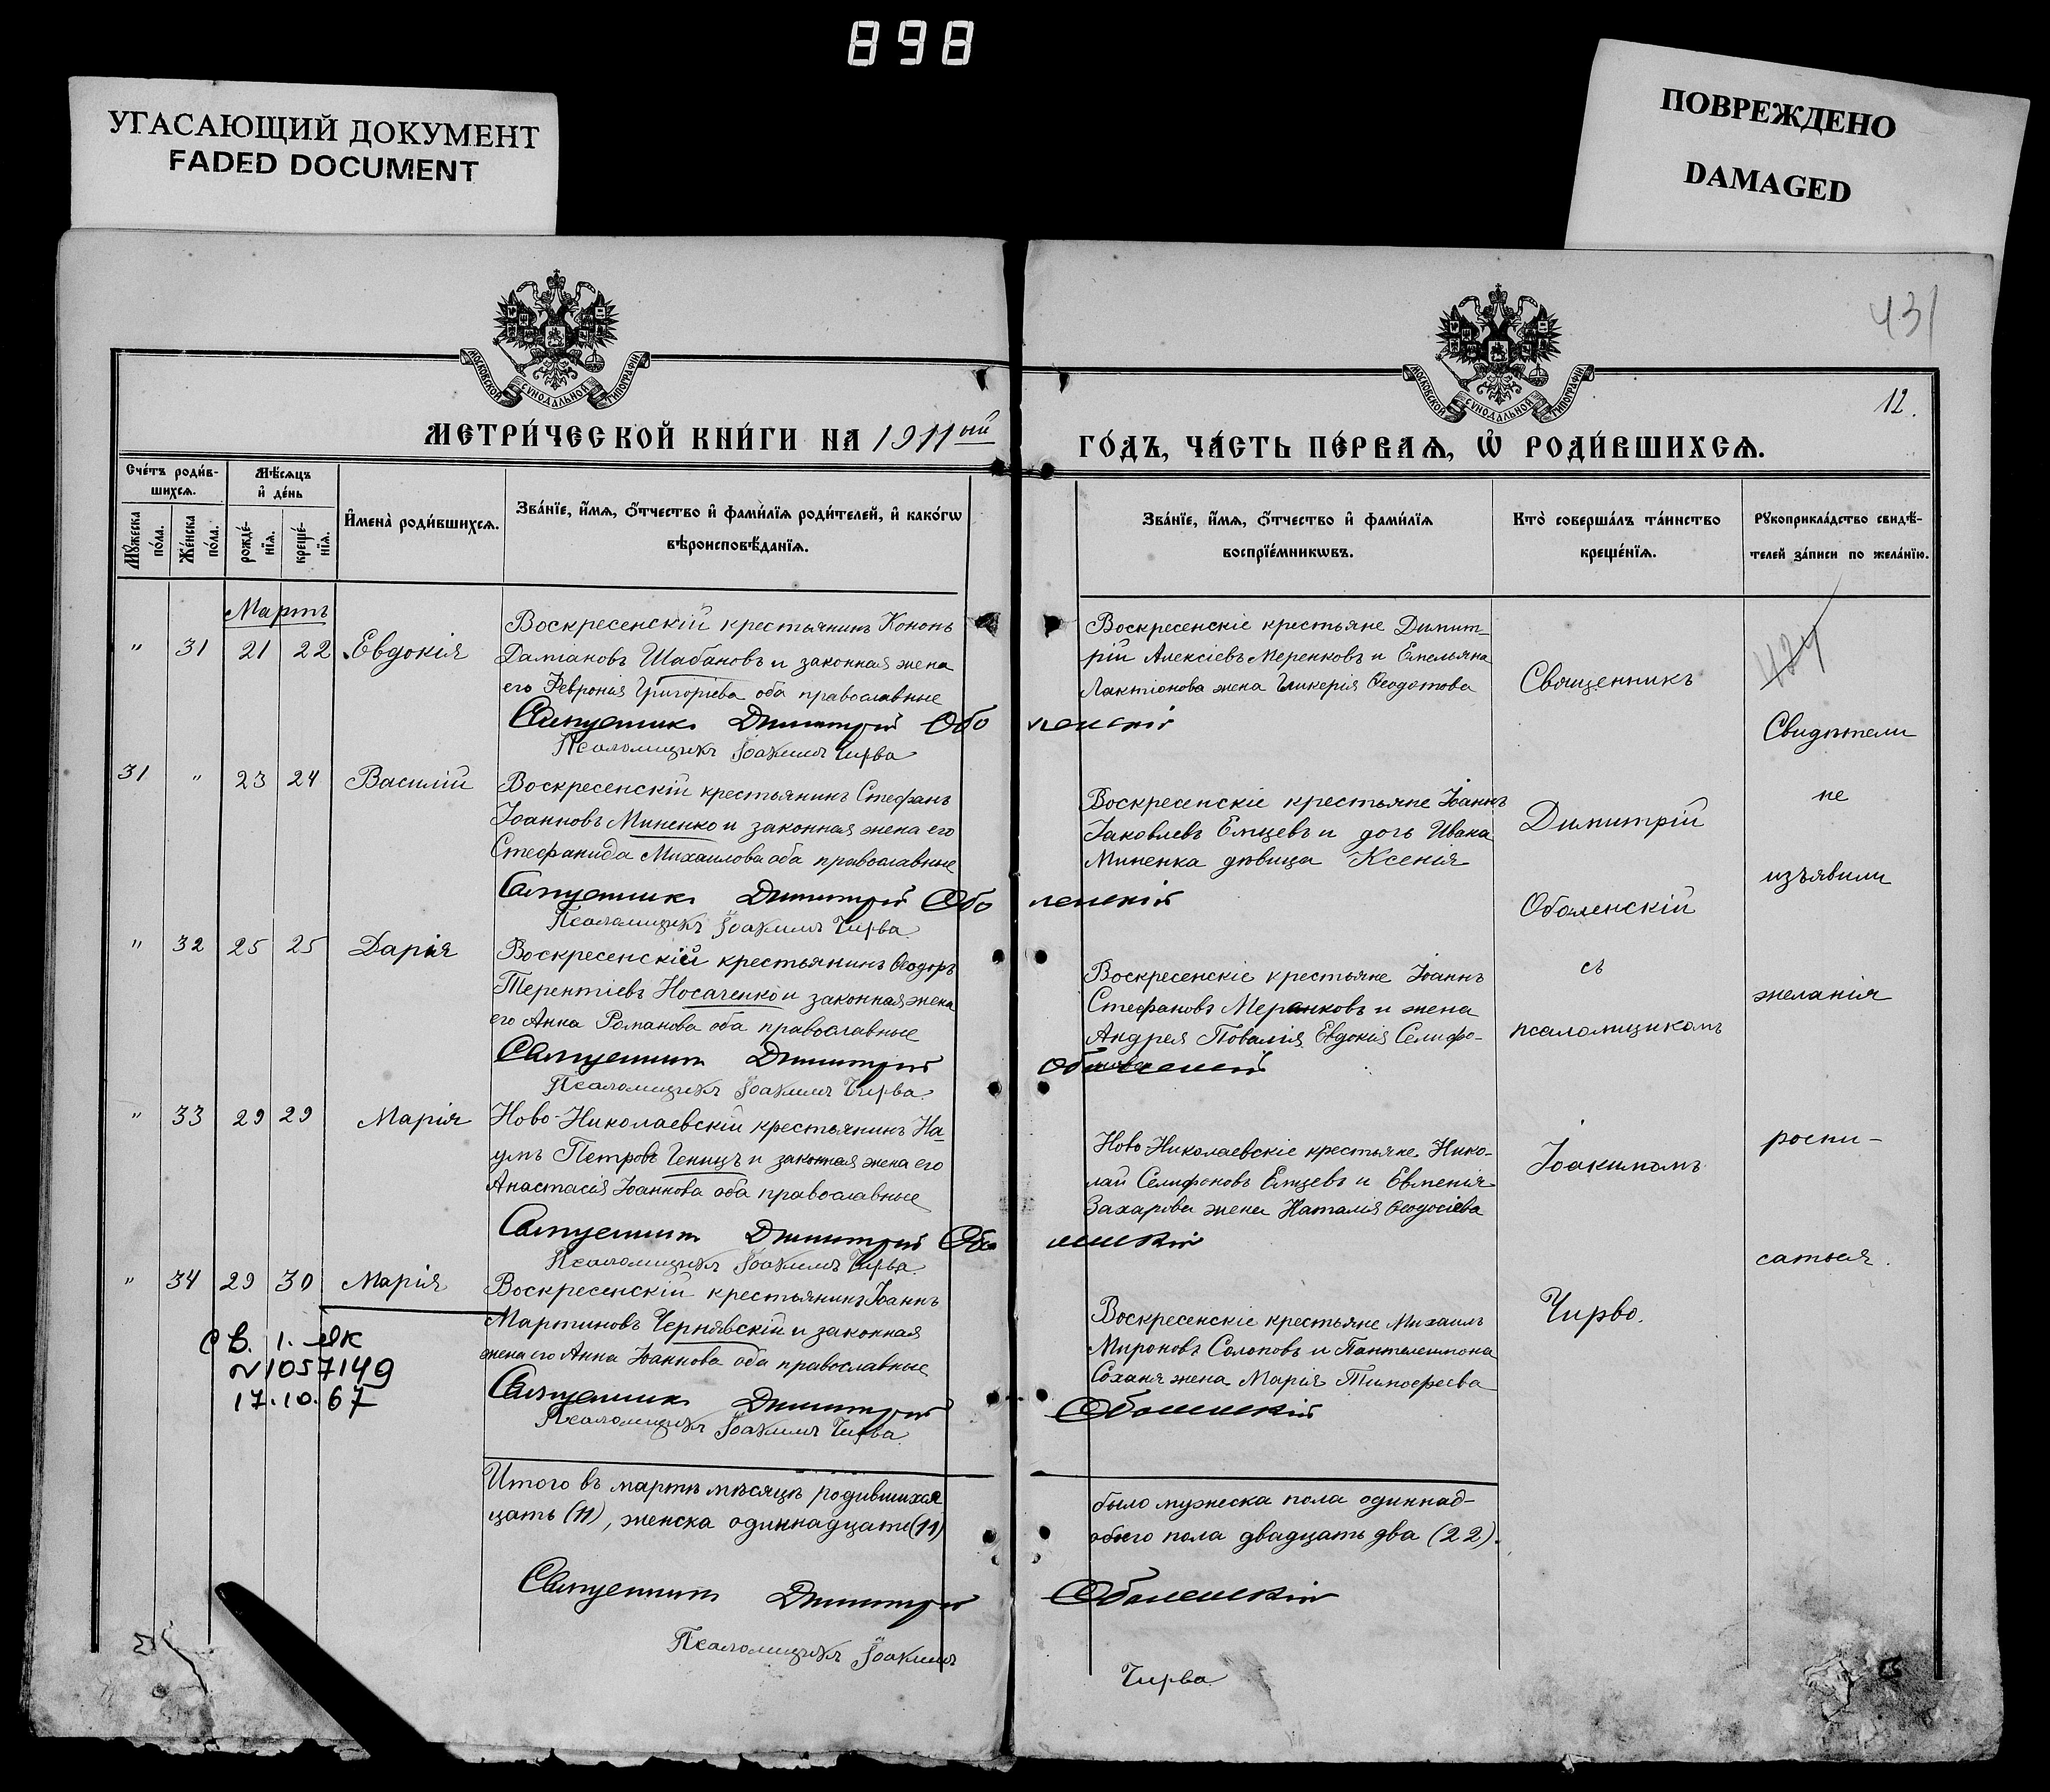 898
УГАСАЮЩИЙ ДОКУМЕНТ
FADED DOCUMENT
ПОВРЕЖДЕНО
DAMAGED
431
12.
МОСКОВСКОЙ СѴНОДАЛЬНОЙ ТИПОГРАФІИ
МОСКОВСКОЙ СѴНОДАЛЬНОЙ ТИПОГРАФІИ
МЕТРИ́ЧЕСКОЙ КНИ́ГИ НА 1911ый
ГО́ДЪ, ЧА́СТЬ ПЕ́РВАѦ, Ѡ҆ РОДИ́ВШИХСѦ.
Сче́тъ роди́в-
шихсѧ.
Мꙋ́жеска по́ла.
Же́нска по́ла.
Мѣ́сѧцъ
и҆ де́нь
рожде́-
нїѧ.
креще́-
нїѧ.
И҆мена̀ роди́вшихсѧ.
Зва́нїе, и҆́мѧ, ѻ҆́тчество и҆ фами́лїѧ роди́телей, и҆ како́гѡ
вѣроисповѣ́данїѧ.
Зва́нїе, и҆́мѧ, ѻ҆́тчество и҆ фами́лїѧ
воспрїе́мникѡвъ.
Кто̀ соверша́лъ та́инство
креще́нїѧ.
Рꙋкоприкла́дство свидѣ́-
телей за́писи по жела́нїю.
Мартъ
" 31 21 22 Евдокія
Воскресенскій крестьянинъ Кононъ
Даміановъ Шабановъ и законная жена
его Феврония Григоріева оба православные
Священникъ Димитрій Оболенскій
Псаломщикъ Іоакимъ Чирва
Воскресенскіе крестьяне Димит-
рій Алексіевъ Меренковъ и Емельяна
Лактіонова жена Гликерія Ѳеодотова
31 " 23 24 Василій
Воскресенскій крестьянинъ Стефанъ
Іоанновъ Миненко и законная жена его
Стефанида Михаилова оба православные
Священникъ Димитрій Оболенскій
Псаломщикъ Іоакимъ Чирва
Воскресенскіе крестьяне Іоаннъ
Іаковлевъ Емцевъ и дочь Ивана
Миненка дѣвица Ксенія
" 32 25 25 Дарія
Воскресенскій крестьянинъ Ѳеодоръ
Терентіевъ Носаченко и законная жена
его Анна Романова оба православные
Священникъ Димитрій Оболенскій
Псаломщикъ Іоакимъ Чирва
Воскресенскіе крестьяне Іоаннъ
Стефановъ Меренковъ и жена
Андрея Повалія Евдокія Селифо-
" 33 29 29 Марія
Ново-Николаевскій крестьянинъ На-
умъ Петровъ Ченицъ и законная жена его
Анастасія Іоаннова оба православные
Священникъ Димитрій Оболенскій
Псаломщикъ Іоакимъ Чирва
Ново Николаевскіе крестьяне Нико-
лай Селифоновъ Емцевъ и Евменія
Захарова жена Наталія Ѳеодосіева
" 34 29 30 Марія
Воскресенскій крестьянинъ Іоаннъ
Мартиновъ Чернявскій и законная
жена его Анна Іоаннова оба православные
Священникъ Димитрій Оболенскій
Псаломщикъ Іоакимъ Чирва
Воскресенскіе крестьяне Михаилъ
Мироновъ Солоповъ и Пантелеимона
Соханя жена Марія Тимофеева
св. 1-ЯК
N1057149
17.10.67
Священникъ
Димитрій
Оболенскій
съ
псаломщикомъ
Іоакимомъ
Чирво.
424
Свидѣтели
не
изъявили
желанія
роспи-
саться.
Итого въ мартѣ мѣсяцѣ родившихся было мужеска пола одиннад-
цать (11), женска одиннадцать (11) обоего пола двадцать два (22).
Священникъ Димитрій Оболенскій
Псаломщикъ Іоакимъ Чирва